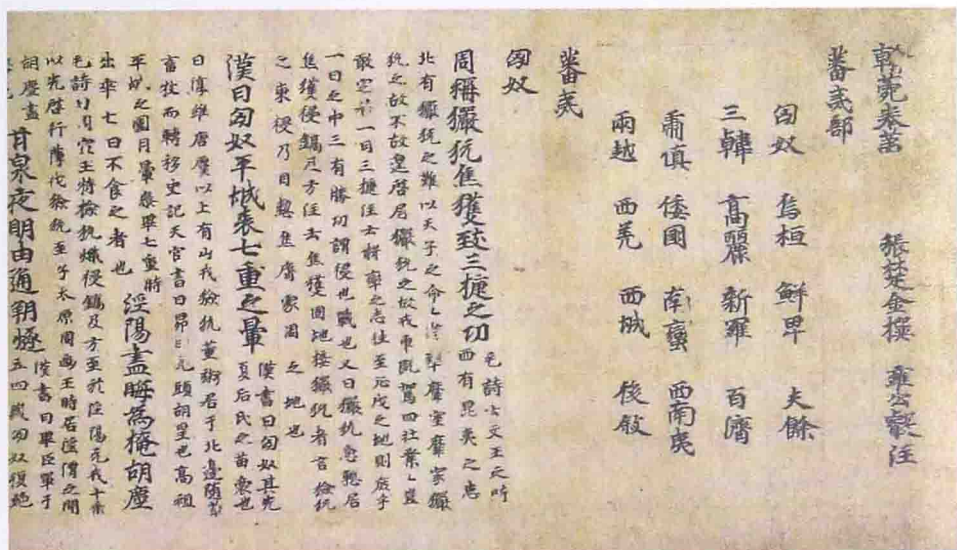 翰菀卷第 張楚金撰 雍公叡注
蕃夷部
匈奴 烏桓 鮮卑 夫餘
三韓 高麗 新羅 百濟
肅慎 倭國 南蠻 西南夷
兩越 西羌 西城 後叙
蕃夷
匈奴
周稱獫狁焦獲致三捷之功 毛詩云文王之時
西有昆夷之患
北有獫狁之難以天子之命 靡室靡家獫
狁之故不故遑啓居獫狁之故戎車既駕四牡業々豈
敢定 一月三捷注云 至所戍之地則庶乎
一月之中三有勝功謂侵也戰也又曰獫狁 居
焦獲侵鎬及方注云焦獲周地接獫狁者言獫狁
之來侵乃自 焦 周之地也
漢曰匈奴平城表七重之暈 漢書曰匈奴其先
夏后氏之苗裔也
曰淳維唐虞以上有山戎獫狁薰粥居于北邊随草
畜牧而轉移史記天官書曰昴曰 頭胡星也高祖
平城之圍月暈參畢七重時
出 七日不食之者也 涇陽盡晦為掩胡塵
毛詩曰周宣王時獫狁熾侵鎬及方至於涇陽元戎十乘
以先啓行薄伐獫狁至于太原周幽王時居涇渭之間
胡塵盡 甘泉夜明由通朝燧 漢書曰單臣單于
五四歲匈奴復絶